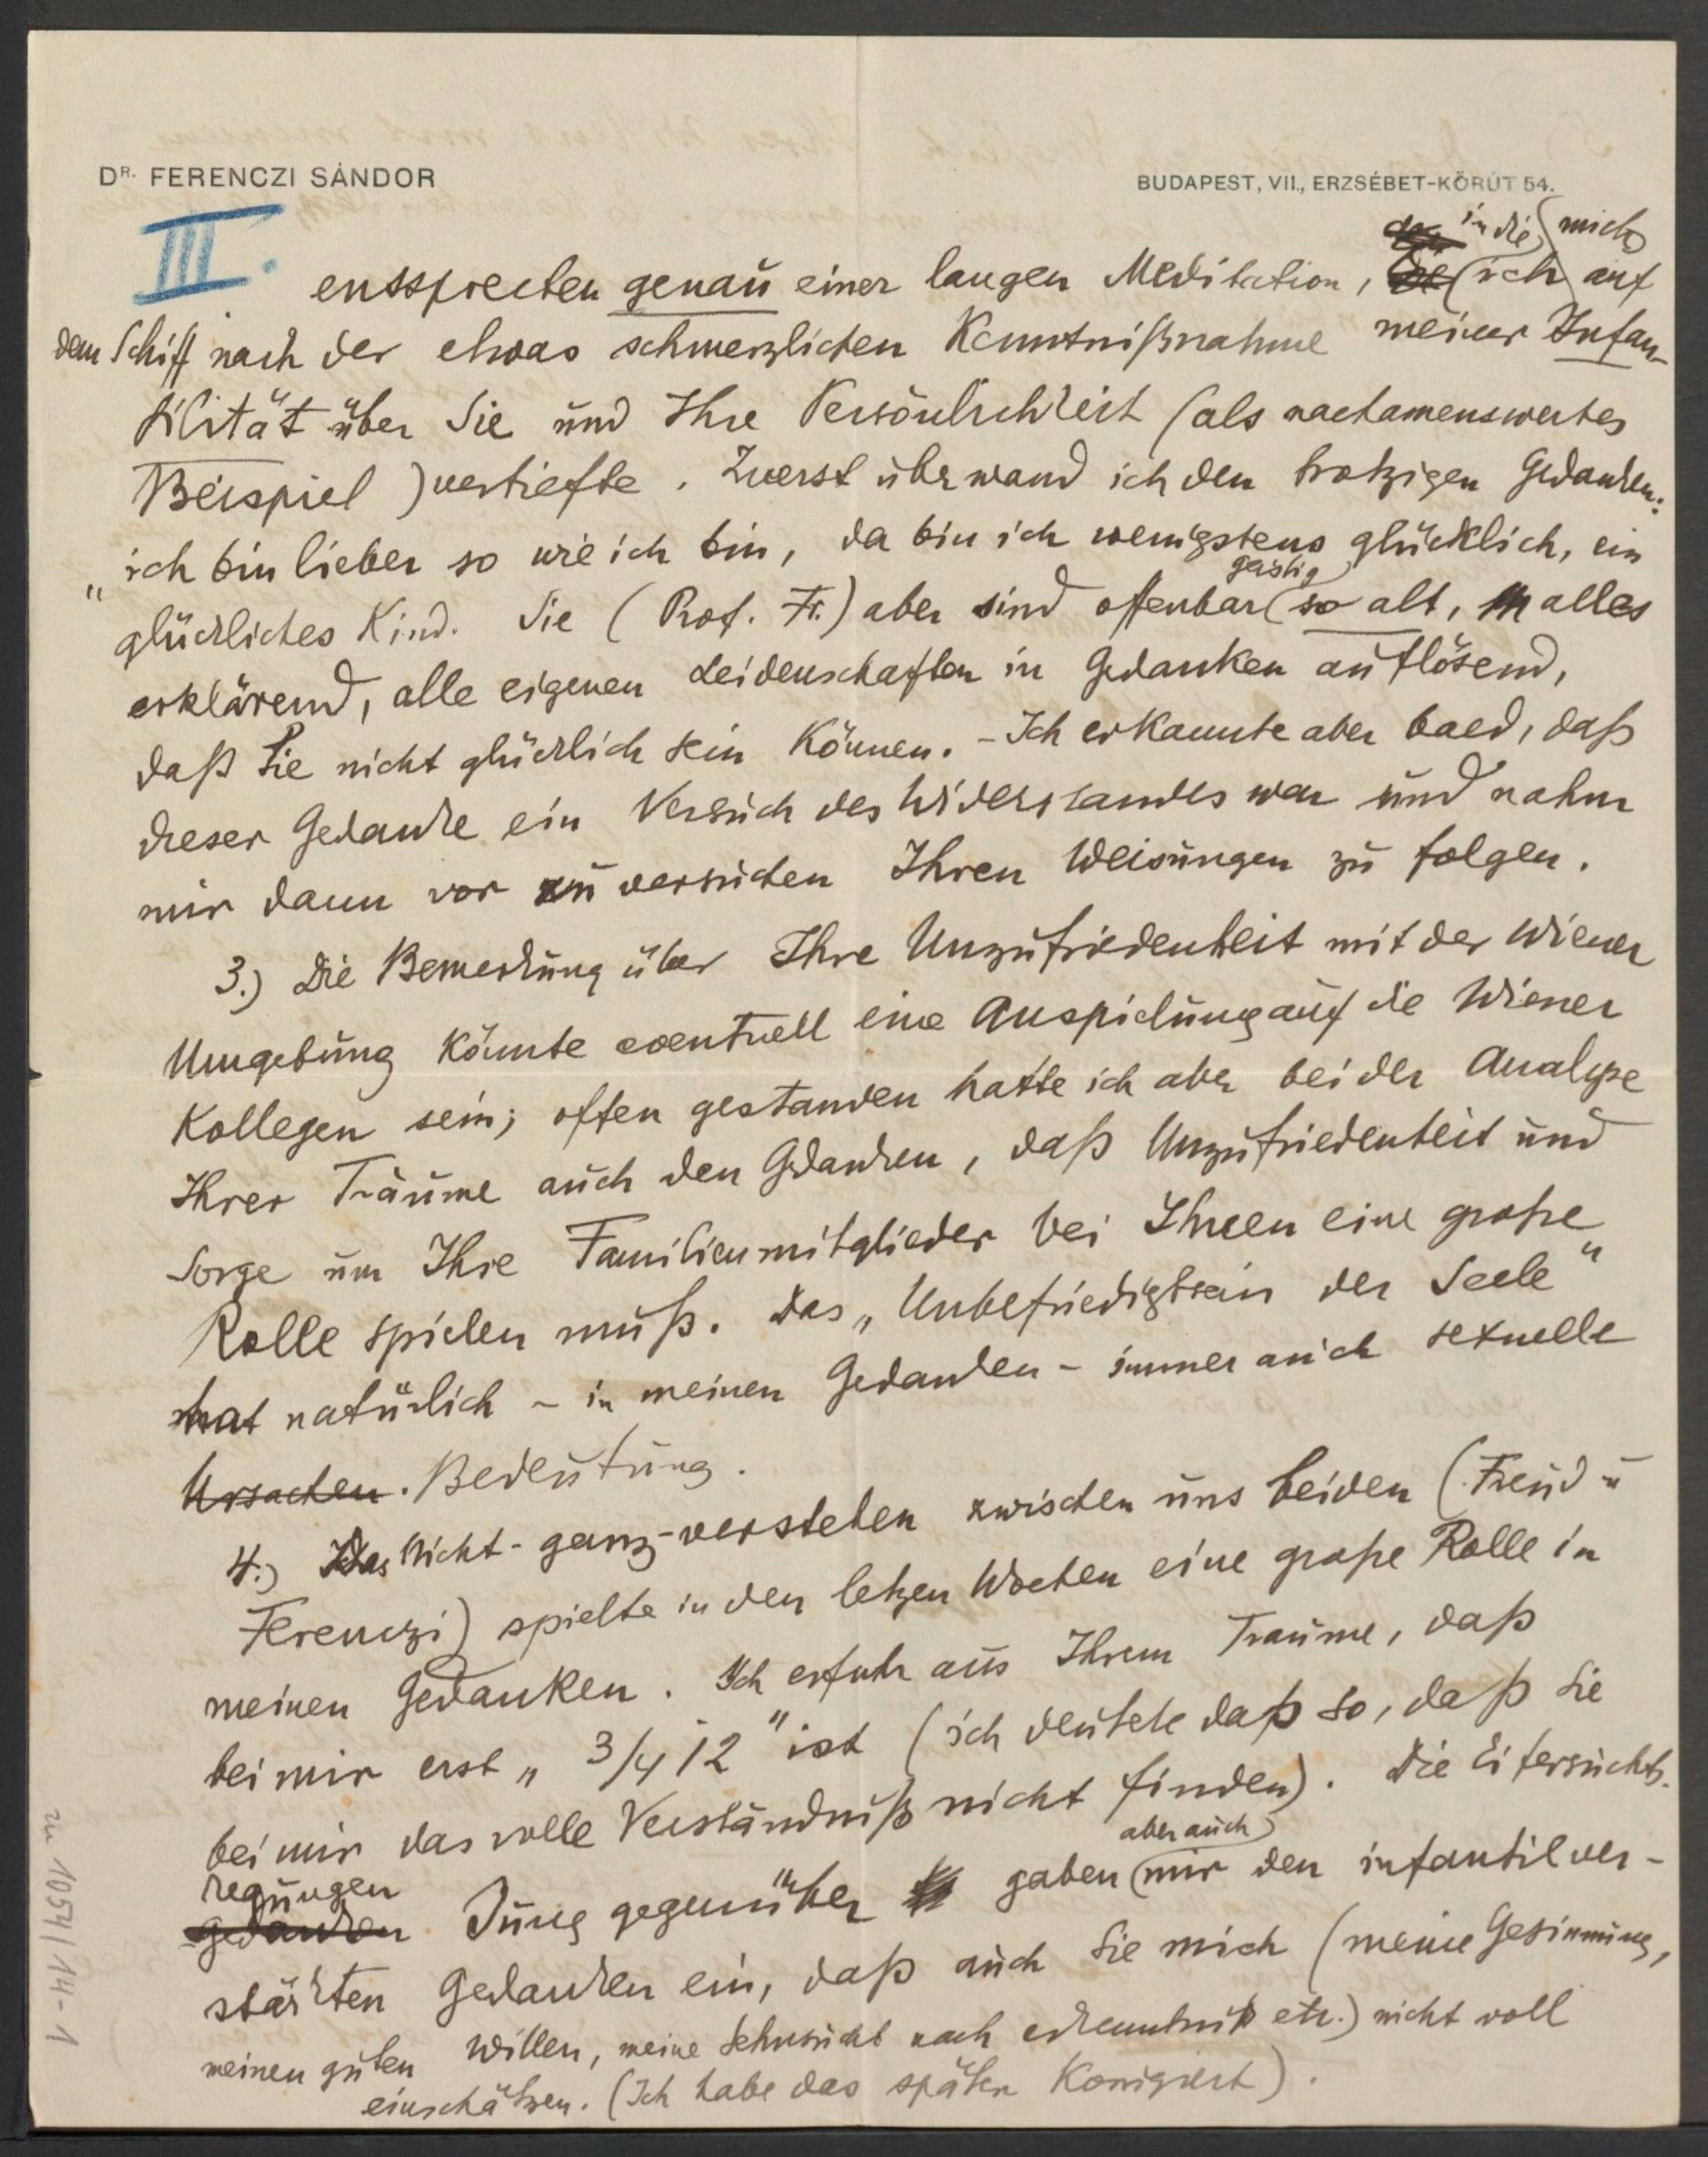 DR. FERENCZI SÁNDOR
BUDAPEST, VII., ERZSÉBET-KÖRÚT 54.
III.
in die mich
entsprechen genau einer langen Meditation, ich auf
dem Schiff nach der etwas schmerzlichen Kenntnißnahme meiner Infan-
tilität über Sie und Ihre Persönlichkeit (als nachamenswertes
Beispiel) vertiefte. Zuerst überwand ich den trotzigen Gedanken:
„ich bin lieber so wie ich bin, da bin ich wenigstens glücklich, ein
geistig
glückliches Kind. Sie (Prof. Fr.) aber sind offenbar so alt, alles
erklärend, alle eigenen Leidenschaften in Gedanken auflösend,
daß Sie nicht glücklich sein können. - Ich erkannte aber bald, daß
dieser Gedanke ein Versuch des Widerstandes war und nahm
mir dann vor zu versuchen Ihren Weisungen zu folgen.
3.) Die Bemerkung über Ihre Unzufriedenheit mit der Wiener
Umgebung könnte eventuell eine Anspielung auf die Wiener
Kollegen sein; offen gestanden hatte ich aber bei der Analyse
Ihrer Träume auch den Gedanken, daß Unzufriedenheit und
Sorge um Ihre Familienmitglieder bei Ihnen eine große
Rolle spielen muß. Das „Unbefriedigtsein der Seele"
hat natürlich - in meinen Gedanken - immer auch sexuelle
Ursachen. Bedeutung.
4.) Das Nicht-ganz-verstehen zwischen uns beiden (Freud u
Ferenczi) spielte in den letzen Wochen eine große Rolle in
meinen Gedanken. Ich erfuhr aus Ihrem Traume, daß
bei mir erst „3/4 12" ist (ich deutete daß so, daß Sie
bei mir das volle Verständniß nicht finden). Die Eifersuchts-
regungen aber auch
gedanken Jung gegenüber gaben mir den infantil ver-
stärkten Gedanken ein, daß auch Sie mich (meine Gesinnung,
meinen guten Willen, meine Sehnsucht nach Erkenntniß etc.) nicht voll
einschätzen. (Ich habe das später korrigiert).
zu 1054/14-1